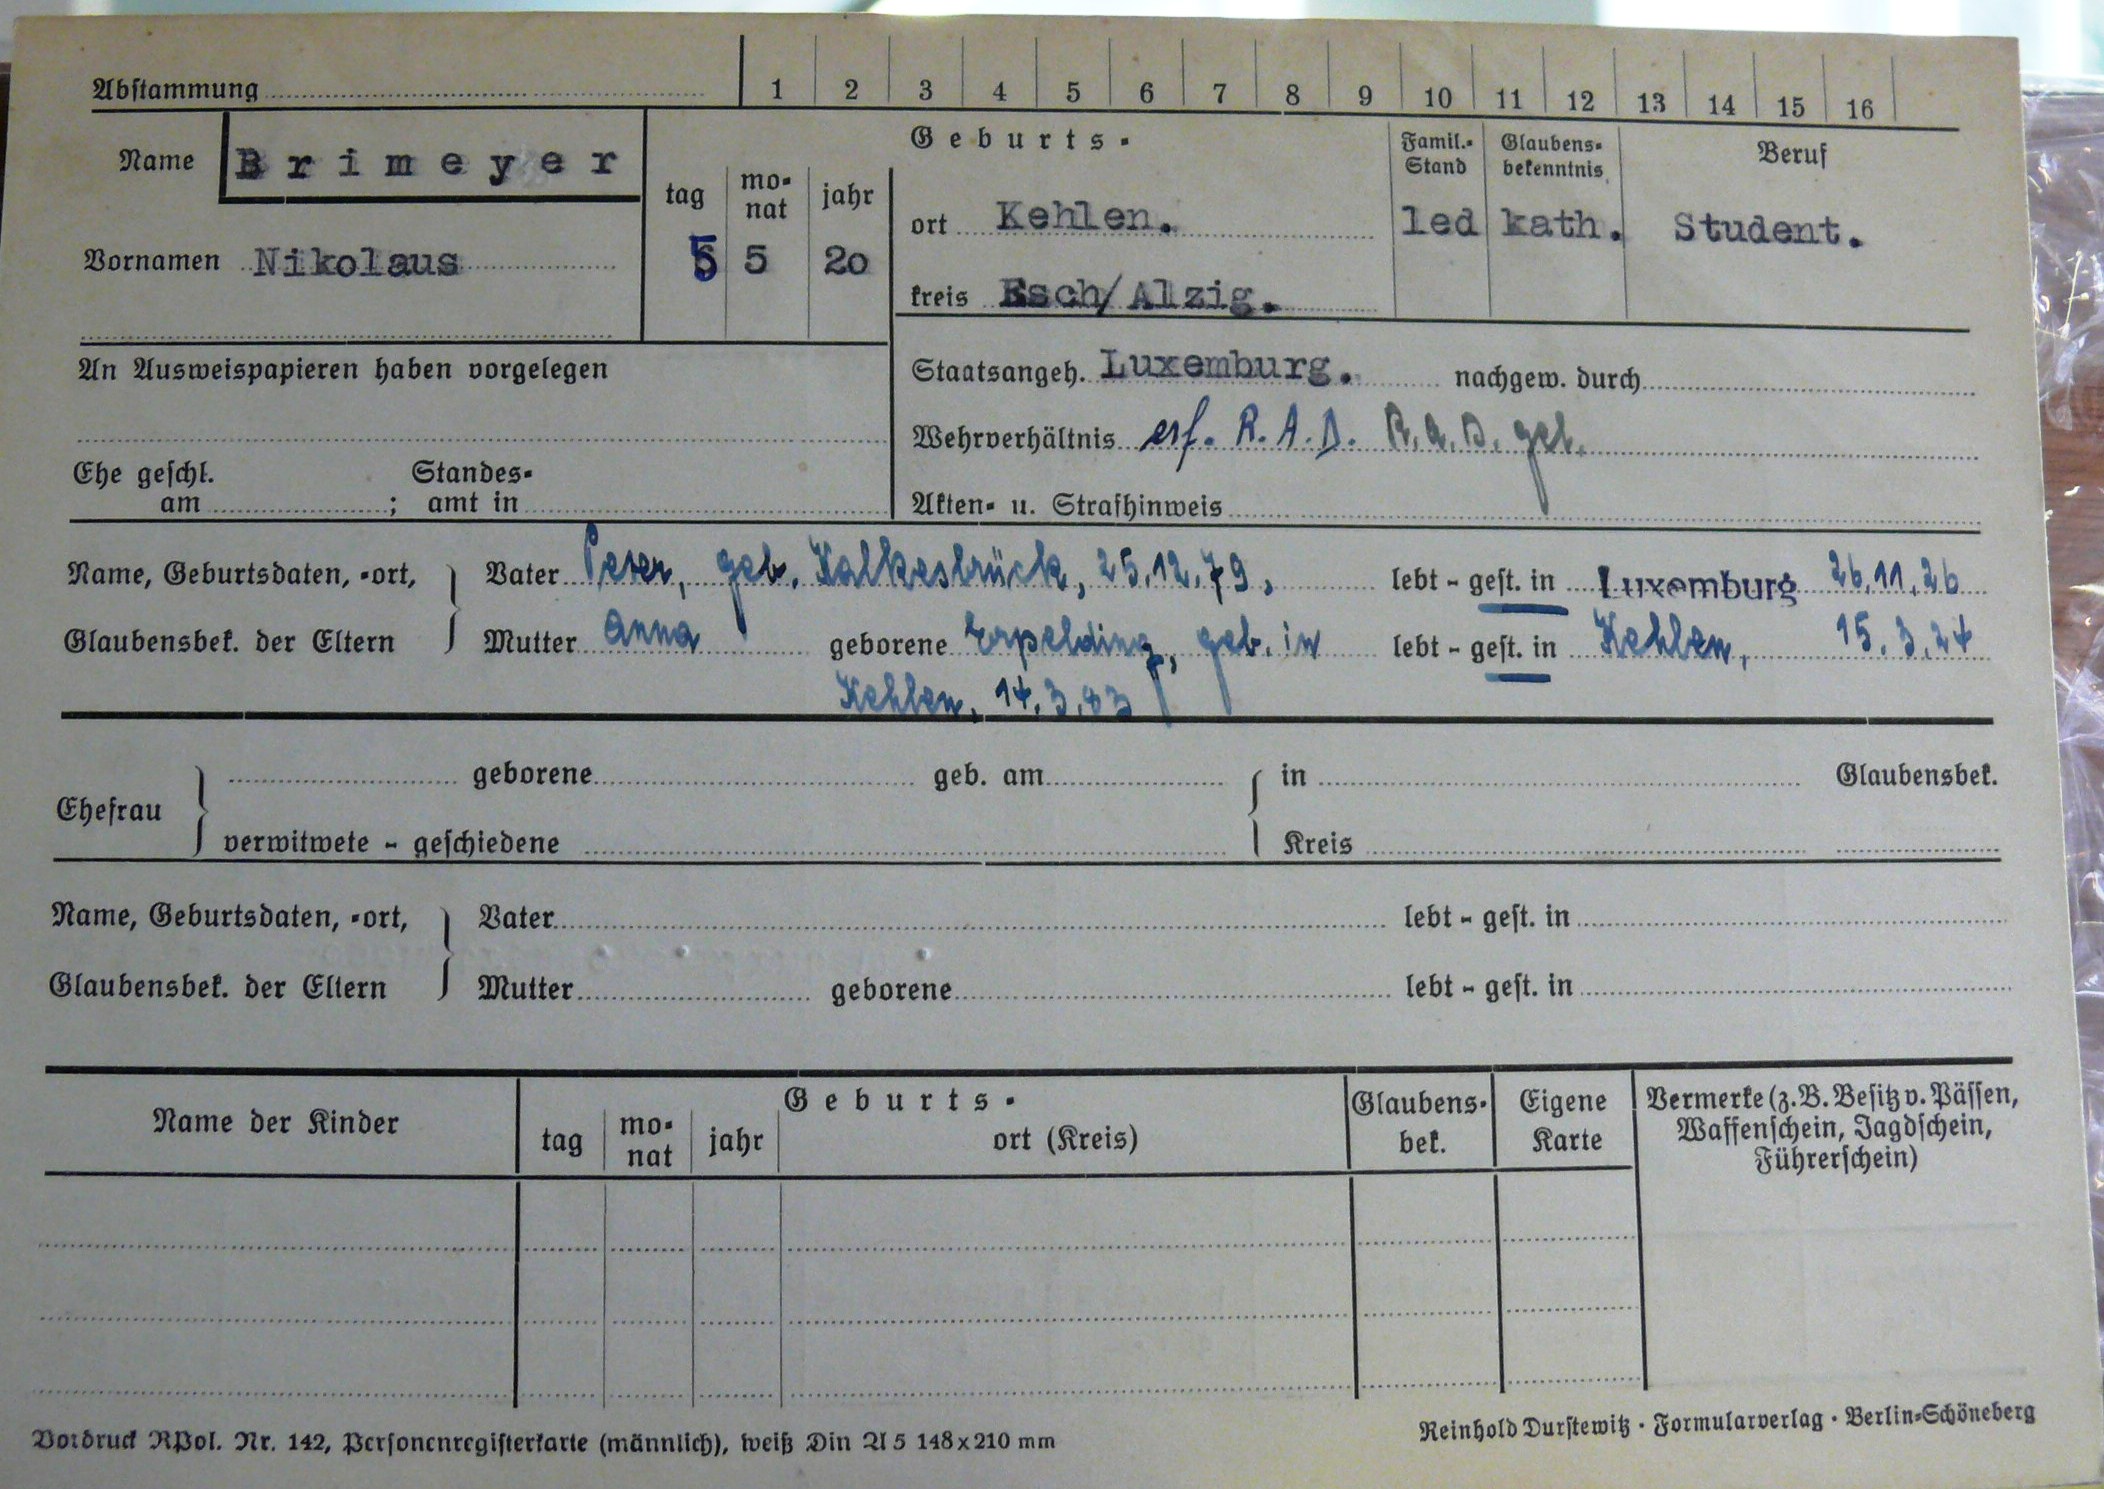 Abstammung 1 2 3 4 5 6 7 8 9 10 11 12 13 14 15 16
Name Brimeyer
Vornamen Nikolaus
Geburts-
tag monat jahr
5 5 20
ort Kehlen.
kreis Esch/Alzig.
Famil.-Stand led
Glaubensbekenntnis kath.
Beruf Student.
An Ausweispapieren haben vorgelegen
Staatsangeh. Luxemburg. nachgew. durch
Wehrverhältnis erf. R.A.D. R.A.D. geb.
Ehe geschl. am ; Standesamt in
Akten- u. Strafhinweis
Name, Geburtsdaten, -ort, Vater Peter, geb. Kalkesbrück, 25.12.79, lebt - gest. in Luxemburg 26.11.26
Glaubensbek. der Eltern Mutter Anna geborene Erpelding, geb. in lebt - gest. in Kehlen, 15.3.24
Kehlen, 14.3.83
Ehefrau geborene geb. am in Glaubensbek.
verwitwete - geschiedene Kreis
Name, Geburtsdaten, -ort, Vater lebt - gest. in
Glaubensbek. der Eltern Mutter geborene lebt - gest. in
Name der Kinder
Geburts-
tag monat jahr ort (Kreis)
Glaubens-bek.
Eigene Karte
Vermerke (z. B. Besitz v. Pässen,
Waffenschein, Jagdschein,
Führerschein)
Vordruck RPol. Nr. 142, Personenregisterkarte (männlich), weiß Din A 5 148x210 mm
Reinhold Durstewitz · Formularverlag · Berlin-Schöneberg